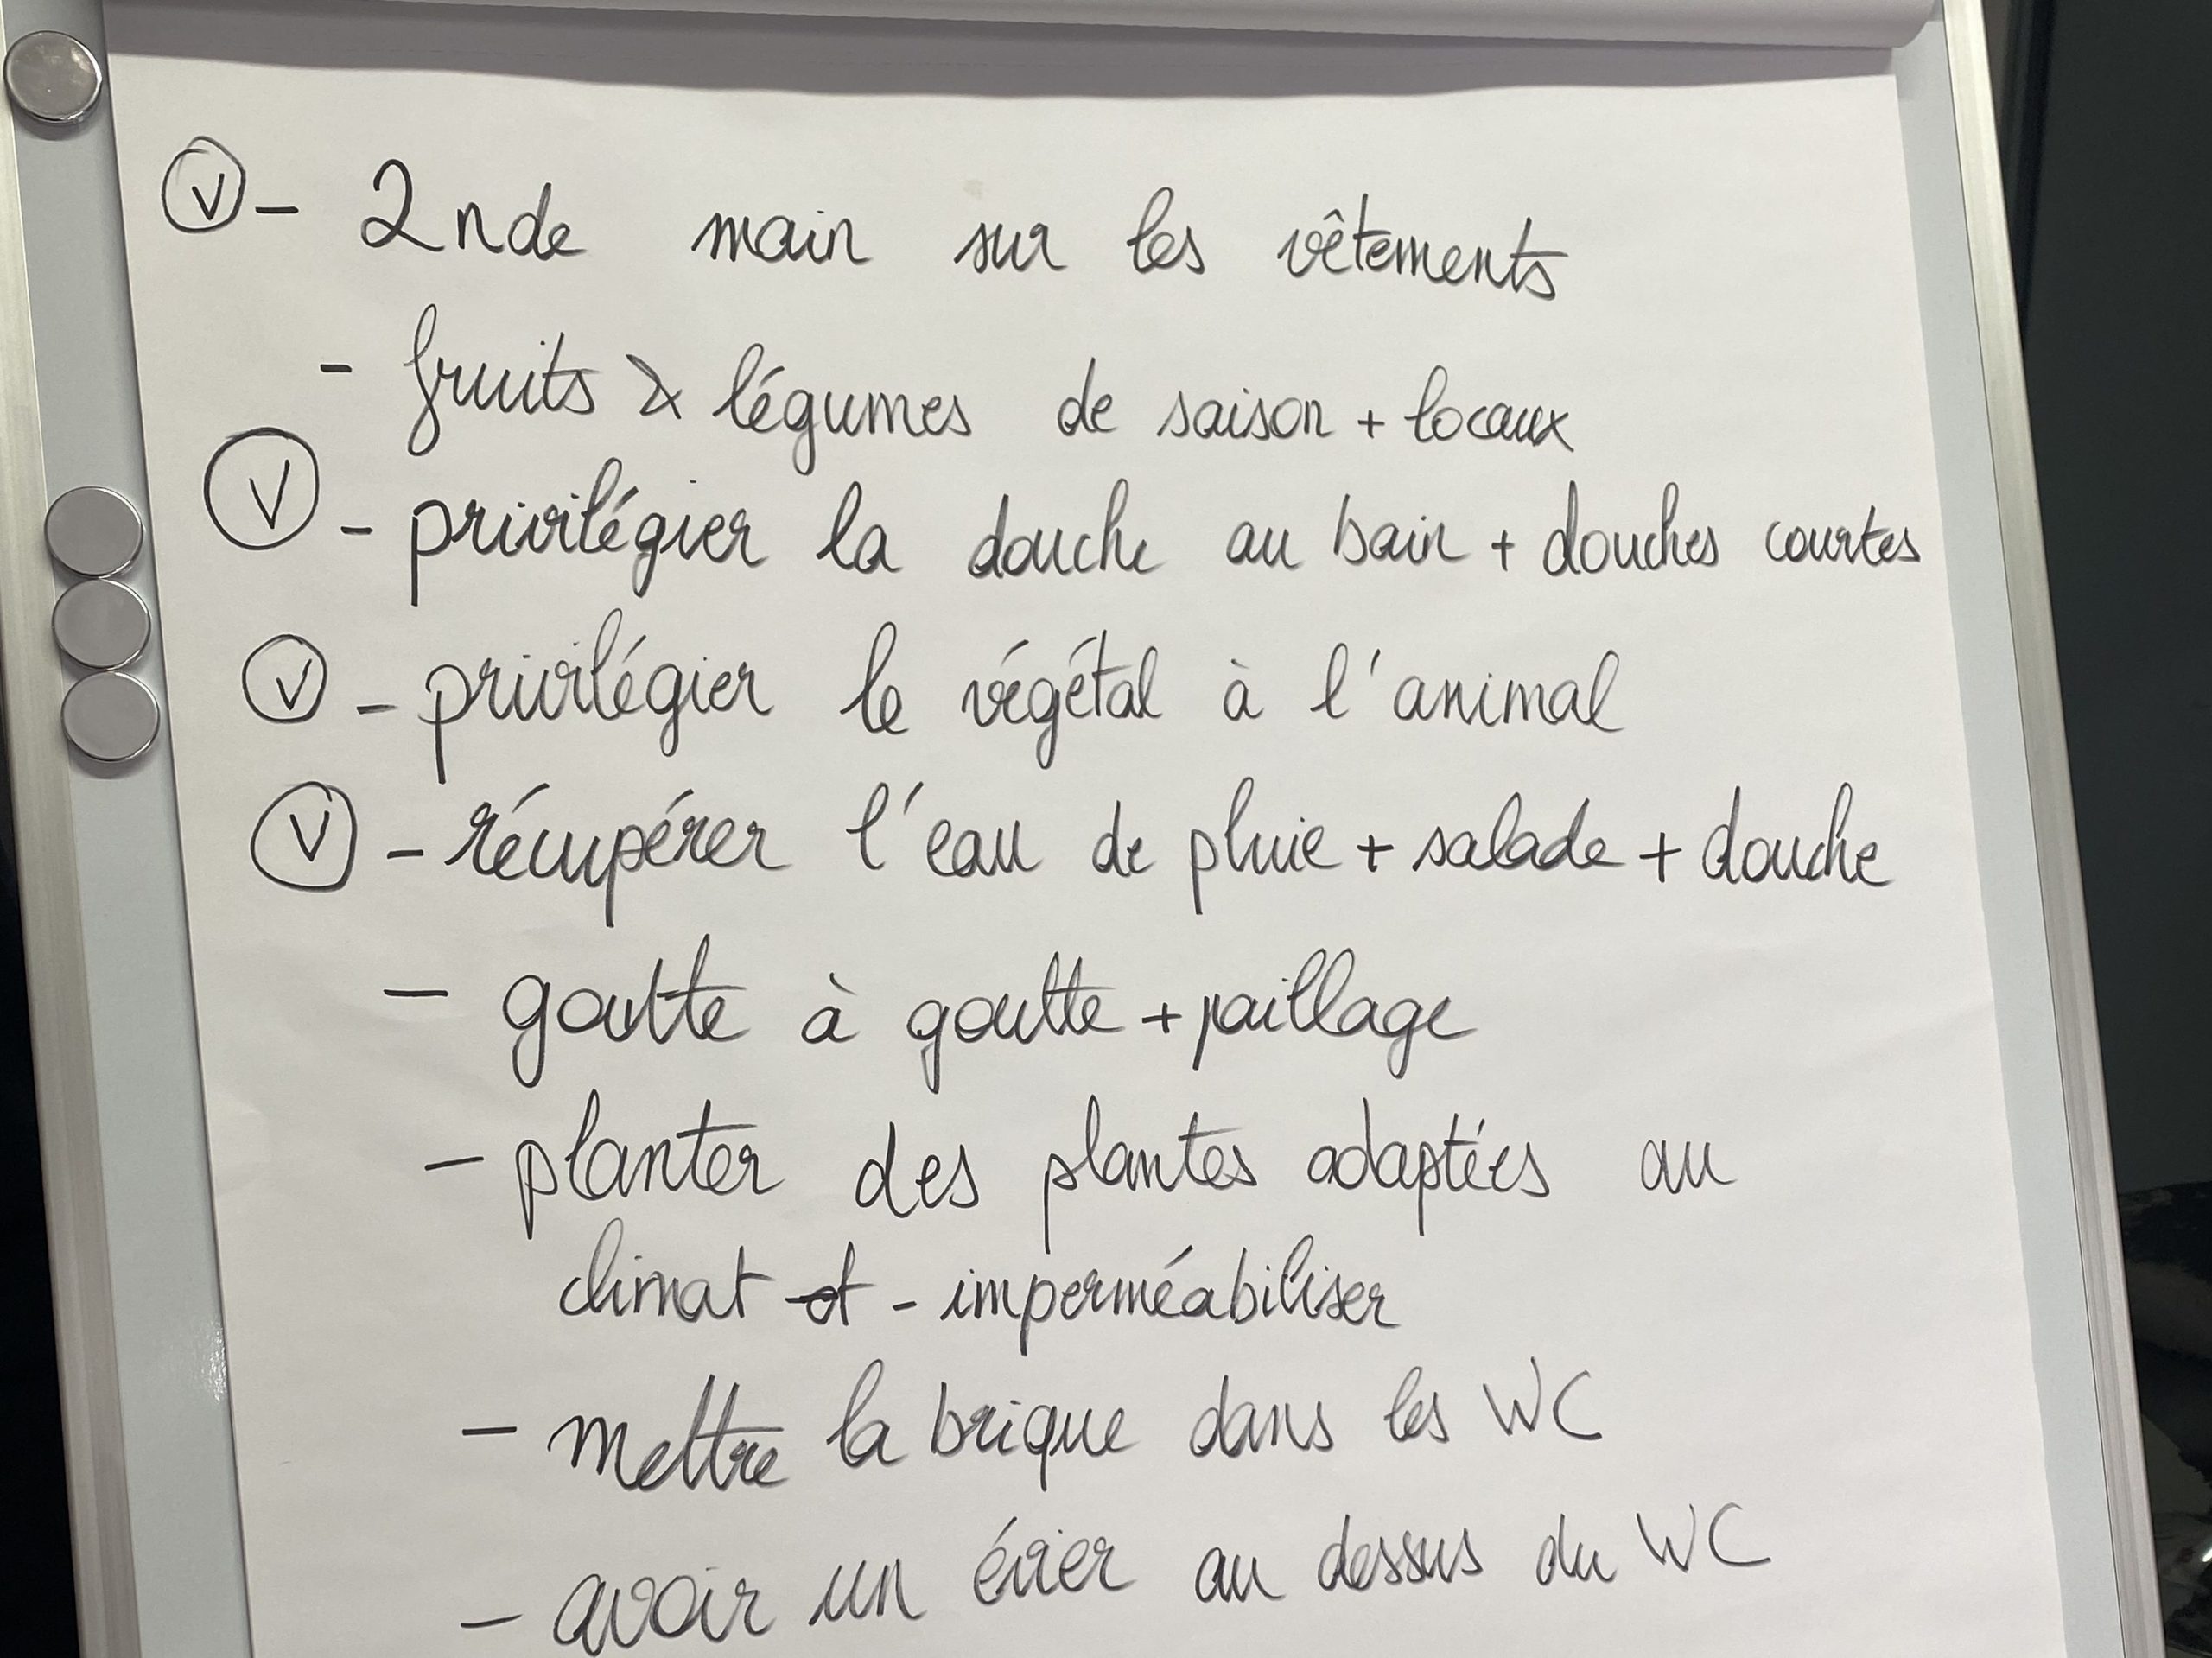 Ⓥ - 2nde main sur les vêtements
- fruits & légumes de saison + locaux
Ⓥ - privilégier la douche au bain + douches courtes
Ⓥ - privilégier le végétal à l'animal
Ⓥ - récupérer l'eau de pluie + salade + douche
- goutte à goutte + paillage
- planter des plantes adaptées au
climat et - imperméabiliser
- mettre la brique dans les WC
- avoir un évier au dessus du WC